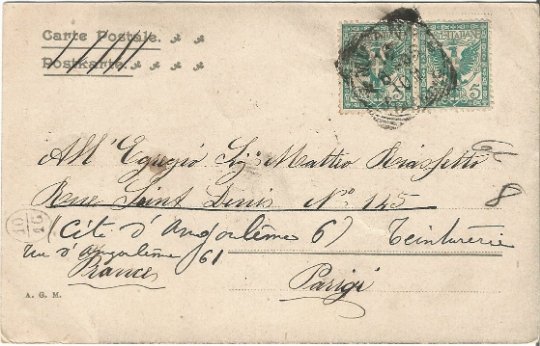 Carte Postale.
Postkarte.
ITALIANE
5
All'Egregio Sig. Matteo
Rue Saint Denis No. 145
8
(Cité d'Angoulême 6) Teinturerie
rue d'Angoulême 61
France
Parigi
A. G. M.